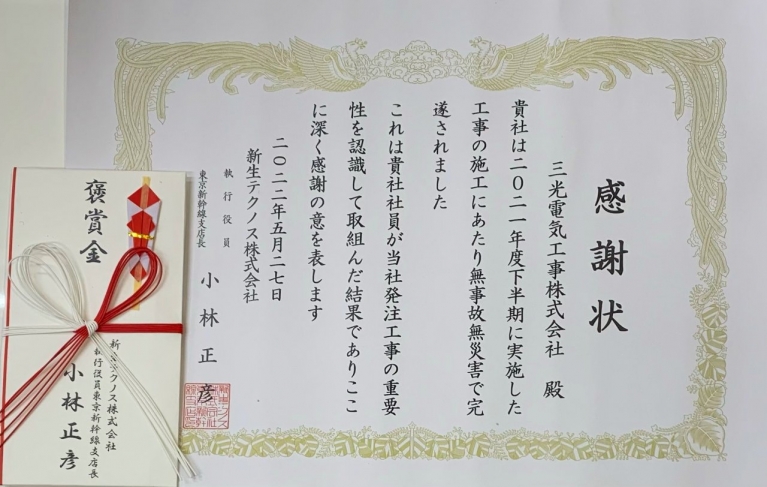 感謝状
三光電気工事株式会社 殿
貴社は二〇二一年度下半期に実施した
工事の施工にあたり無事故無災害で完
遂されました
これは貴社社員が当社発注工事の重要
性を認識して取組んだ結果でありここ
に深く感謝の意を表します
二〇二二年五月二七日
新生テクノス株式会社
執行役員
東京新幹線支店長
小林正彦
褒賞金
新生テクノス株式会社
執行役員東京新幹線支店長
小林正彦